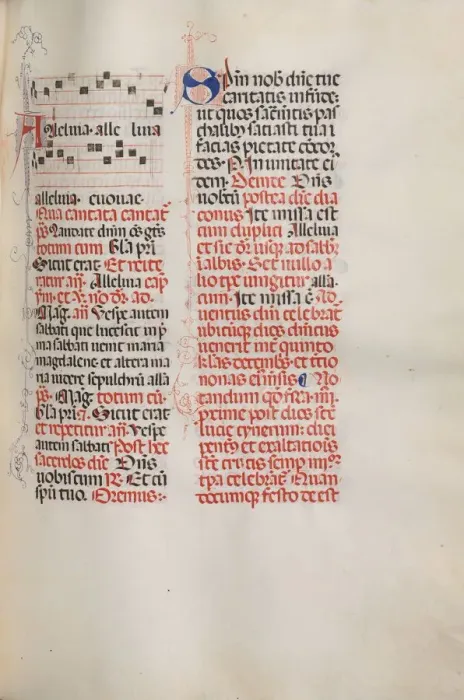 Alleluia. alle luia
alleluia. euouae.
Qua cantata cantat̄
p̄s Laudate dnm̄ oēs gēs
totum cum Gl̄a pr̄i
Sicut erat Et reite
ratur añ. Alleluia cap̄
Mag. añ Vespe autem
sabbati que lucescit in p̄
ma sabbati uenit maria
magdalene et altera ma
ria uidere sepulchrū alla
p̄s. Mag. totum cū.
Gl̄a pr̄i. Sicut erat
et repetitur añ. Vespe
autem sabbati Post hec
sacerdos dic̄ Dn̄s
uobiscum ℞. Et cū
spū tuo. Oremus:-
Spm̄ nob̄ dn̄e tue
caritatis infūde.
ut quos sac̄m̄tis pas
chalib; satiasti tua
facias pietate cōcor
des. P. In unitate ei
dem. Deinde Dn̄s
uobcū postea dic̄ dia
conus Ite missa est
cum duplici Alleluia
et sic dr̄ usq; ad sabb̄
ī albis. Set nullo a
lio tp̄e iungitur alla.
cum. Ite missa ē. Ad
uentus dn̄i celebrat̄
ubicūq; dies dn̄icus
uenerit int̄ quinto
kl̄as decembr̄ et tr̄io
nonas No
tandum q̄ fr̄a .iiii.
prime post dies sc̄e
lucie cynerum: diei
pent̄ et exaltatiōis
sc̄e crucis semp̄ iiii.or
tp̄a celebrāt̄ Quan
documq; festo de est